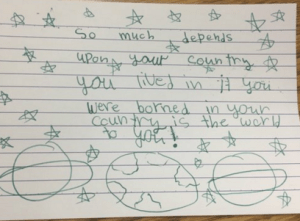 So much depends
upon your country
you lived in if you
were borned in your
country is the world
to you!